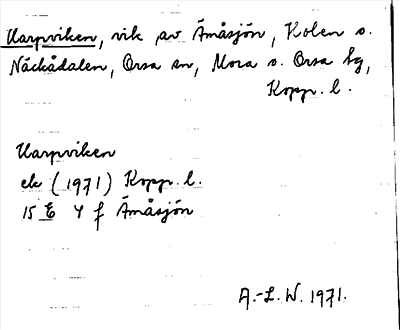 Harpviken, vik av Ämåsjön, Kolen o.
Näckådalen, Orsa sn, Mora o. Orsa tg,
Kopp. l.
Harpviken
ek (1971) Kopp. l.
15 E 4 f Ämåsjön
A.-L. W. 1971.